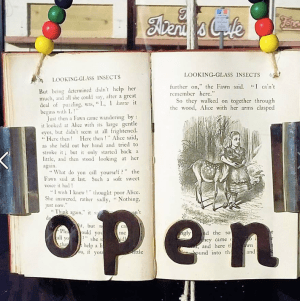 Cafe
LOOKING-GLASS INSECTS
But being determined didn't help her
much, and all she could say, after a great
deal of puzzling, was, "L, I know it
begins with L!"
Just then a Fawn came wandering by:
it looked at Alice with its large gentle
eyes, but didn't seem at all frightened.
"Here then! Here then!" Alice said,
as she held out her hand and tried to
stroke it; but it only started back a
little, and then stood looking at her
again.
"What do you call yourself?" the
Fawn said at last. Such a soft sweet
voice it had!
"I wish I knew!" thought poor Alice.
She answered, rather sadly, "Nothing,
just now."
"Think again,"
LOOKING-GLASS INSECTS
further on," the Fawn said. "I can't
remember here."
So they walked on together through
the wood, Alice with her arms clasped
open